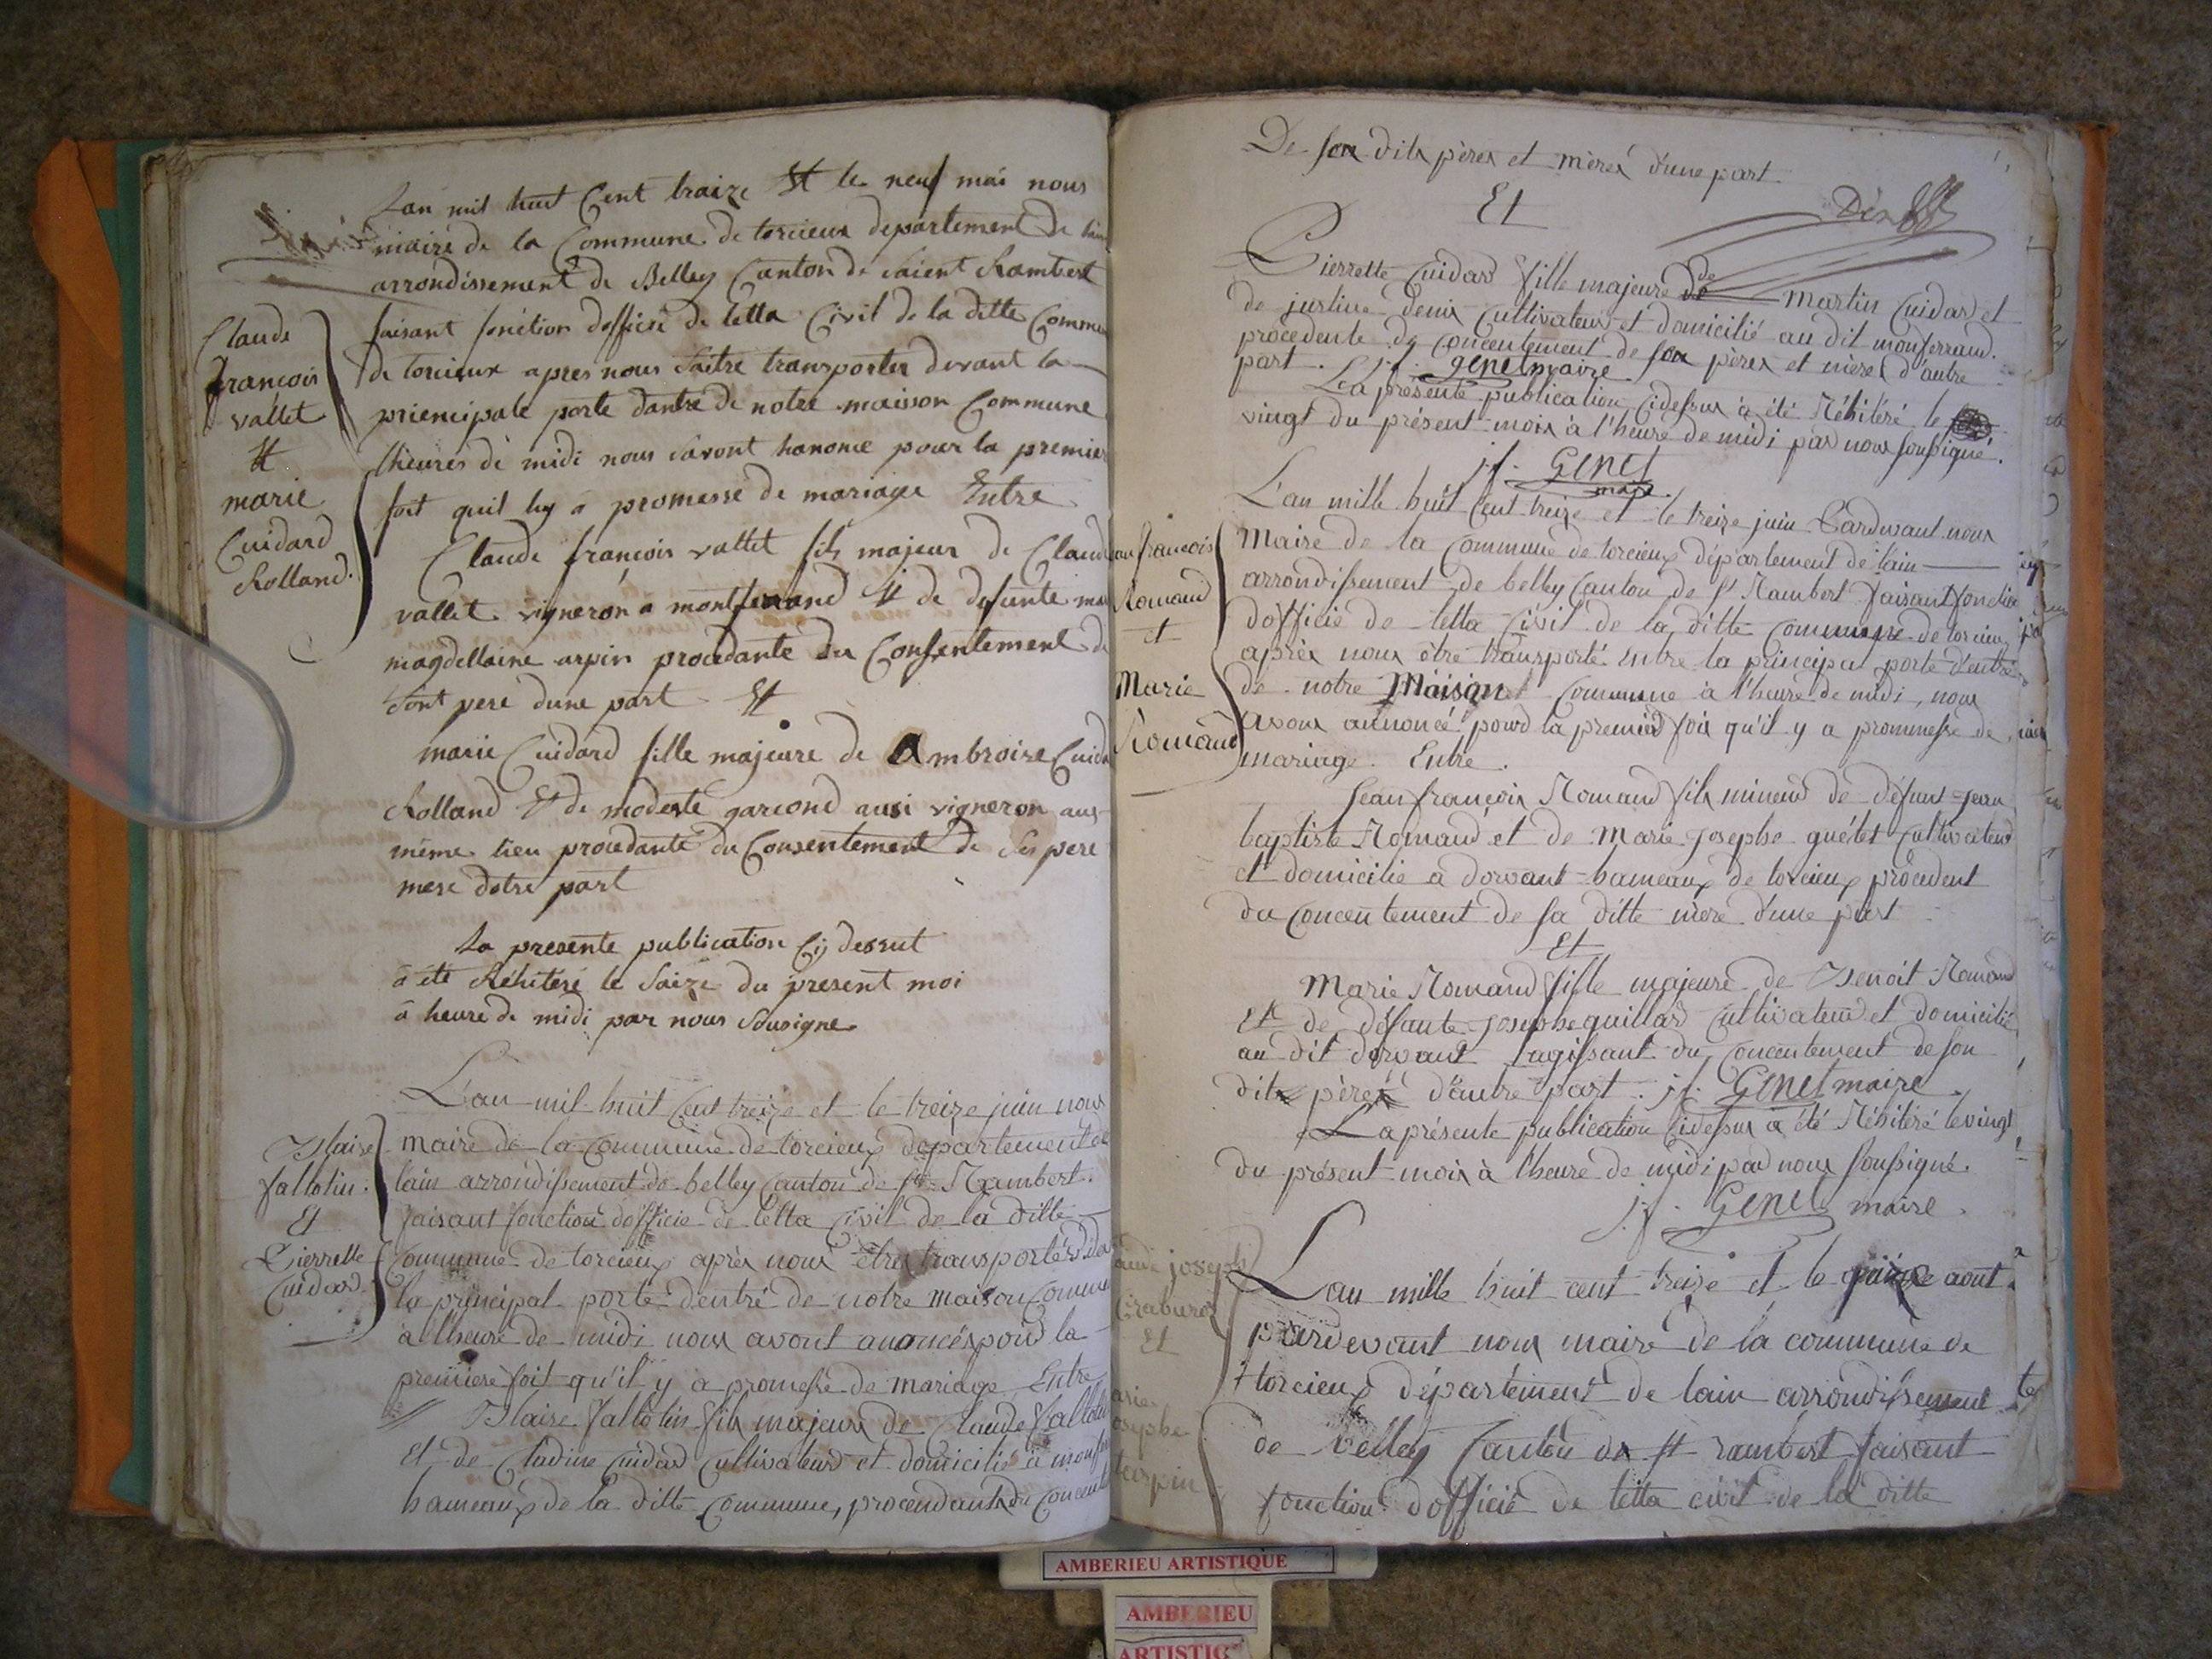 Lan mil huit Cent traize Et le neuf mai nous
maire de la Commune de torcieux departement de lain
arrondissement de Belley Canton de saient Rambert
faisant fonction dofficié de letta Civil de la ditte Commu
de torcieux apres nous saitre transportes devant la
priencipale porte dantré de notre maisson Commune
lheures de midi nous savont hanonce pour la premier
foit quil hy a promesse de mariage Entre
Claude
françois
vallet
Et
marie
Cuidard
Rolland.
Claude françois vallet fils majeur de Claude
vallet vigneron a montferrand Et de defunte mar
magdellaine arpin procedante du Consentement de
sont pere dune part Et
marie Cuidard fille majeure de Ambroise Cuida
Rolland Et de modeste garcond ausi vigneron aus
même lieu procedante du Consentement de Ses pere
mere dotre part
La presente publication Cij dessut
a été Réhitéré le Saize du present moi
a heure de midi par nous Sousigne
L'an mil huit Cent treize et le treize juin nous
maire de la Commune de torcieux departement de
lain arrondissement de belley Canton de St Rambert
faisant fonction dofficie de letta Civil de la ditte
Commune de torcieux après nous être transportés
la principal porte d'entré de notre maison Commune
a l'heure de midi nous avont anoncés pour la
premiere foit qu'il y a promesse de mariage Entre
Blaise
fallotin.
Et
Pierrette
Cuidard
Blaise fallotin fils majeur de Claude fallotin
Et de Cladine Cuidard Cultivateurs et domicilié à
hameaux de la ditte Commune, procendants du
De son dits pères et mères d'une part
Et
Pierrette Cuidard fille majeure de Martin Cuidard et
de justine denis Cultivateurs et domicilié au dit monferrand.
procedente du concentement de son pères et mères d'autre
part. j.f. genet maire
La présente publication Cidessus à été Réhitéré le
vingt du présent mois à l'heure de midi par nous soussigné.
j.f. Genet
maire
L'an mille huit Cent treize et le treize juin Pardevant nous
Maire de la Commune de torcieux département de l'ain
arrondissement de belley Canton de St Rambert faisant fonction
d'officie de letta Civil de la ditte Commune de torcieux
après nous être transporté Entre la principal porte d'entré
de notre Maison Commune à l'heure de midi, nous
avons annoncé pour la premier fois qu'il y a prommesse de
mariage. Entre.
françois
Romand
et
Marie
Romand
Jean françois Romand fils mineur de défunt Jean
baptiste Romand et de Marie josephe guélet Cultivateur
et domicilié a dorvant hameaux de torcieux procedent
du Concentement de sa ditte mère d'une part
Et
Marie Romand fille majeure de Benoit Romand
Et de défunte josephe quillard Cultivateur et domicilié
au dit dorvant Lagissant du Concentement de son
dit père d'autre part. j.f. Genet maire
La présente publication Cidessus a été Réhitéré le vingt
du présent mois à l'heure de midi par nous soussigné.
j.f. Genet maire.
Lan mille huit cent treize et le août
pardevant nous maire de la commune de
torcieux département de lain arrondissement
de belley Canton de St rambert faisant
fonction dofficié de letta civil de la ditte
joseph
Et
AMBERIEU ARTISTIQUE
AMBERIEU
ARTISTIC